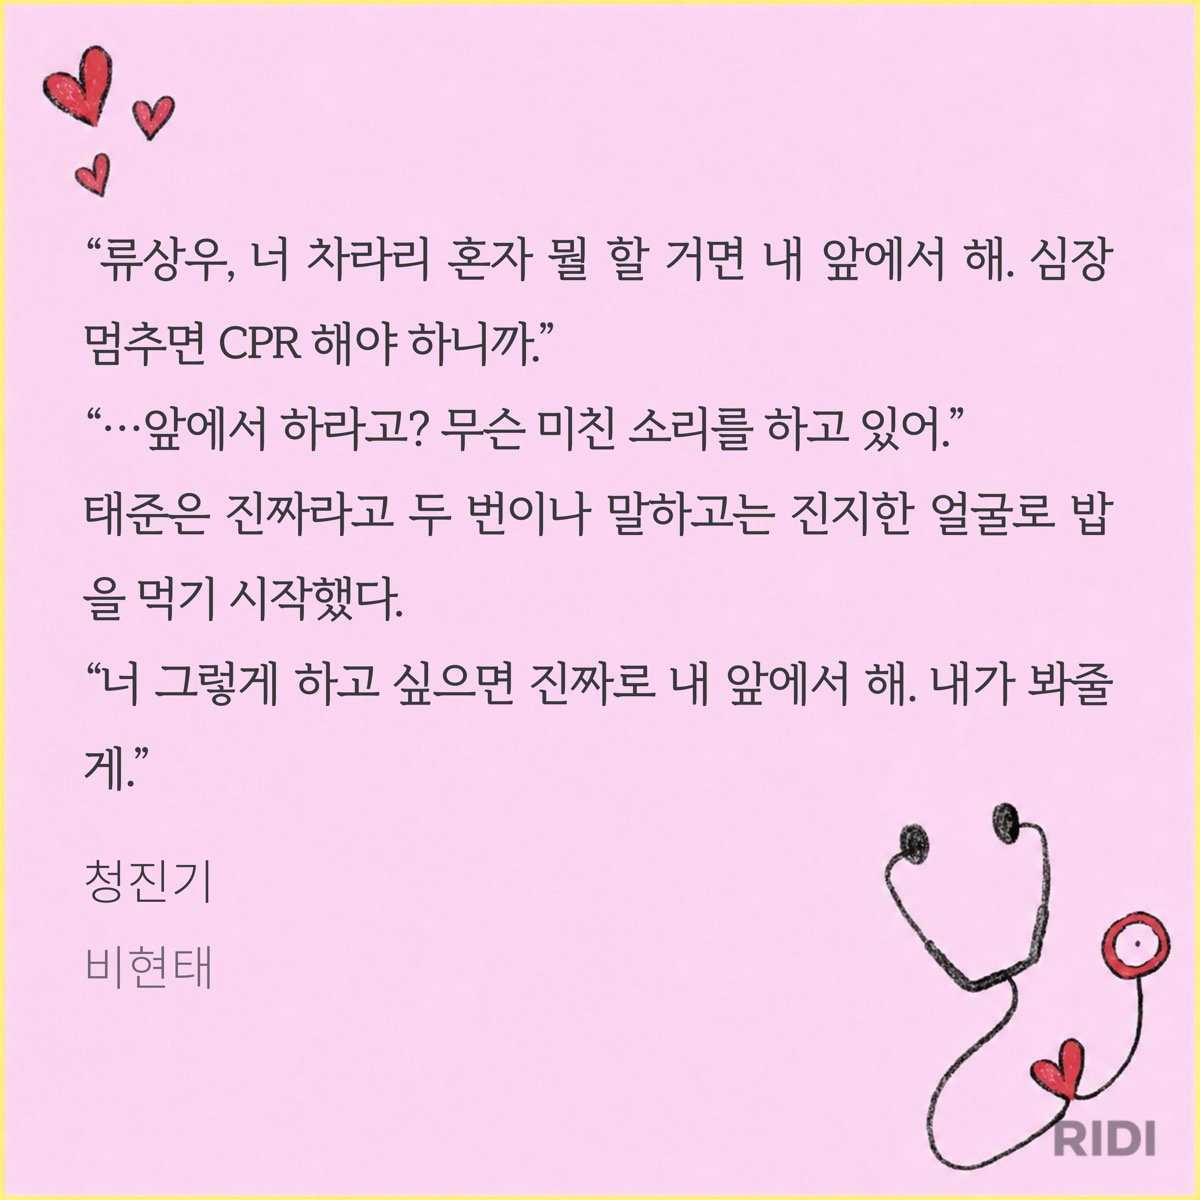 “류상우, 너 차라리 혼자 뭘 할 거면 내 앞에서 해. 심장
멈추면 CPR 해야 하니까.”
“…앞에서 하라고? 무슨 미친 소리를 하고 있어.”
태준은 진짜라고 두 번이나 말하고는 진지한 얼굴로 밥
을 먹기 시작했다.
“너 그렇게 하고 싶으면 진짜로 내 앞에서 해. 내가 봐줄
게.”
청진기
비현태
RIDI